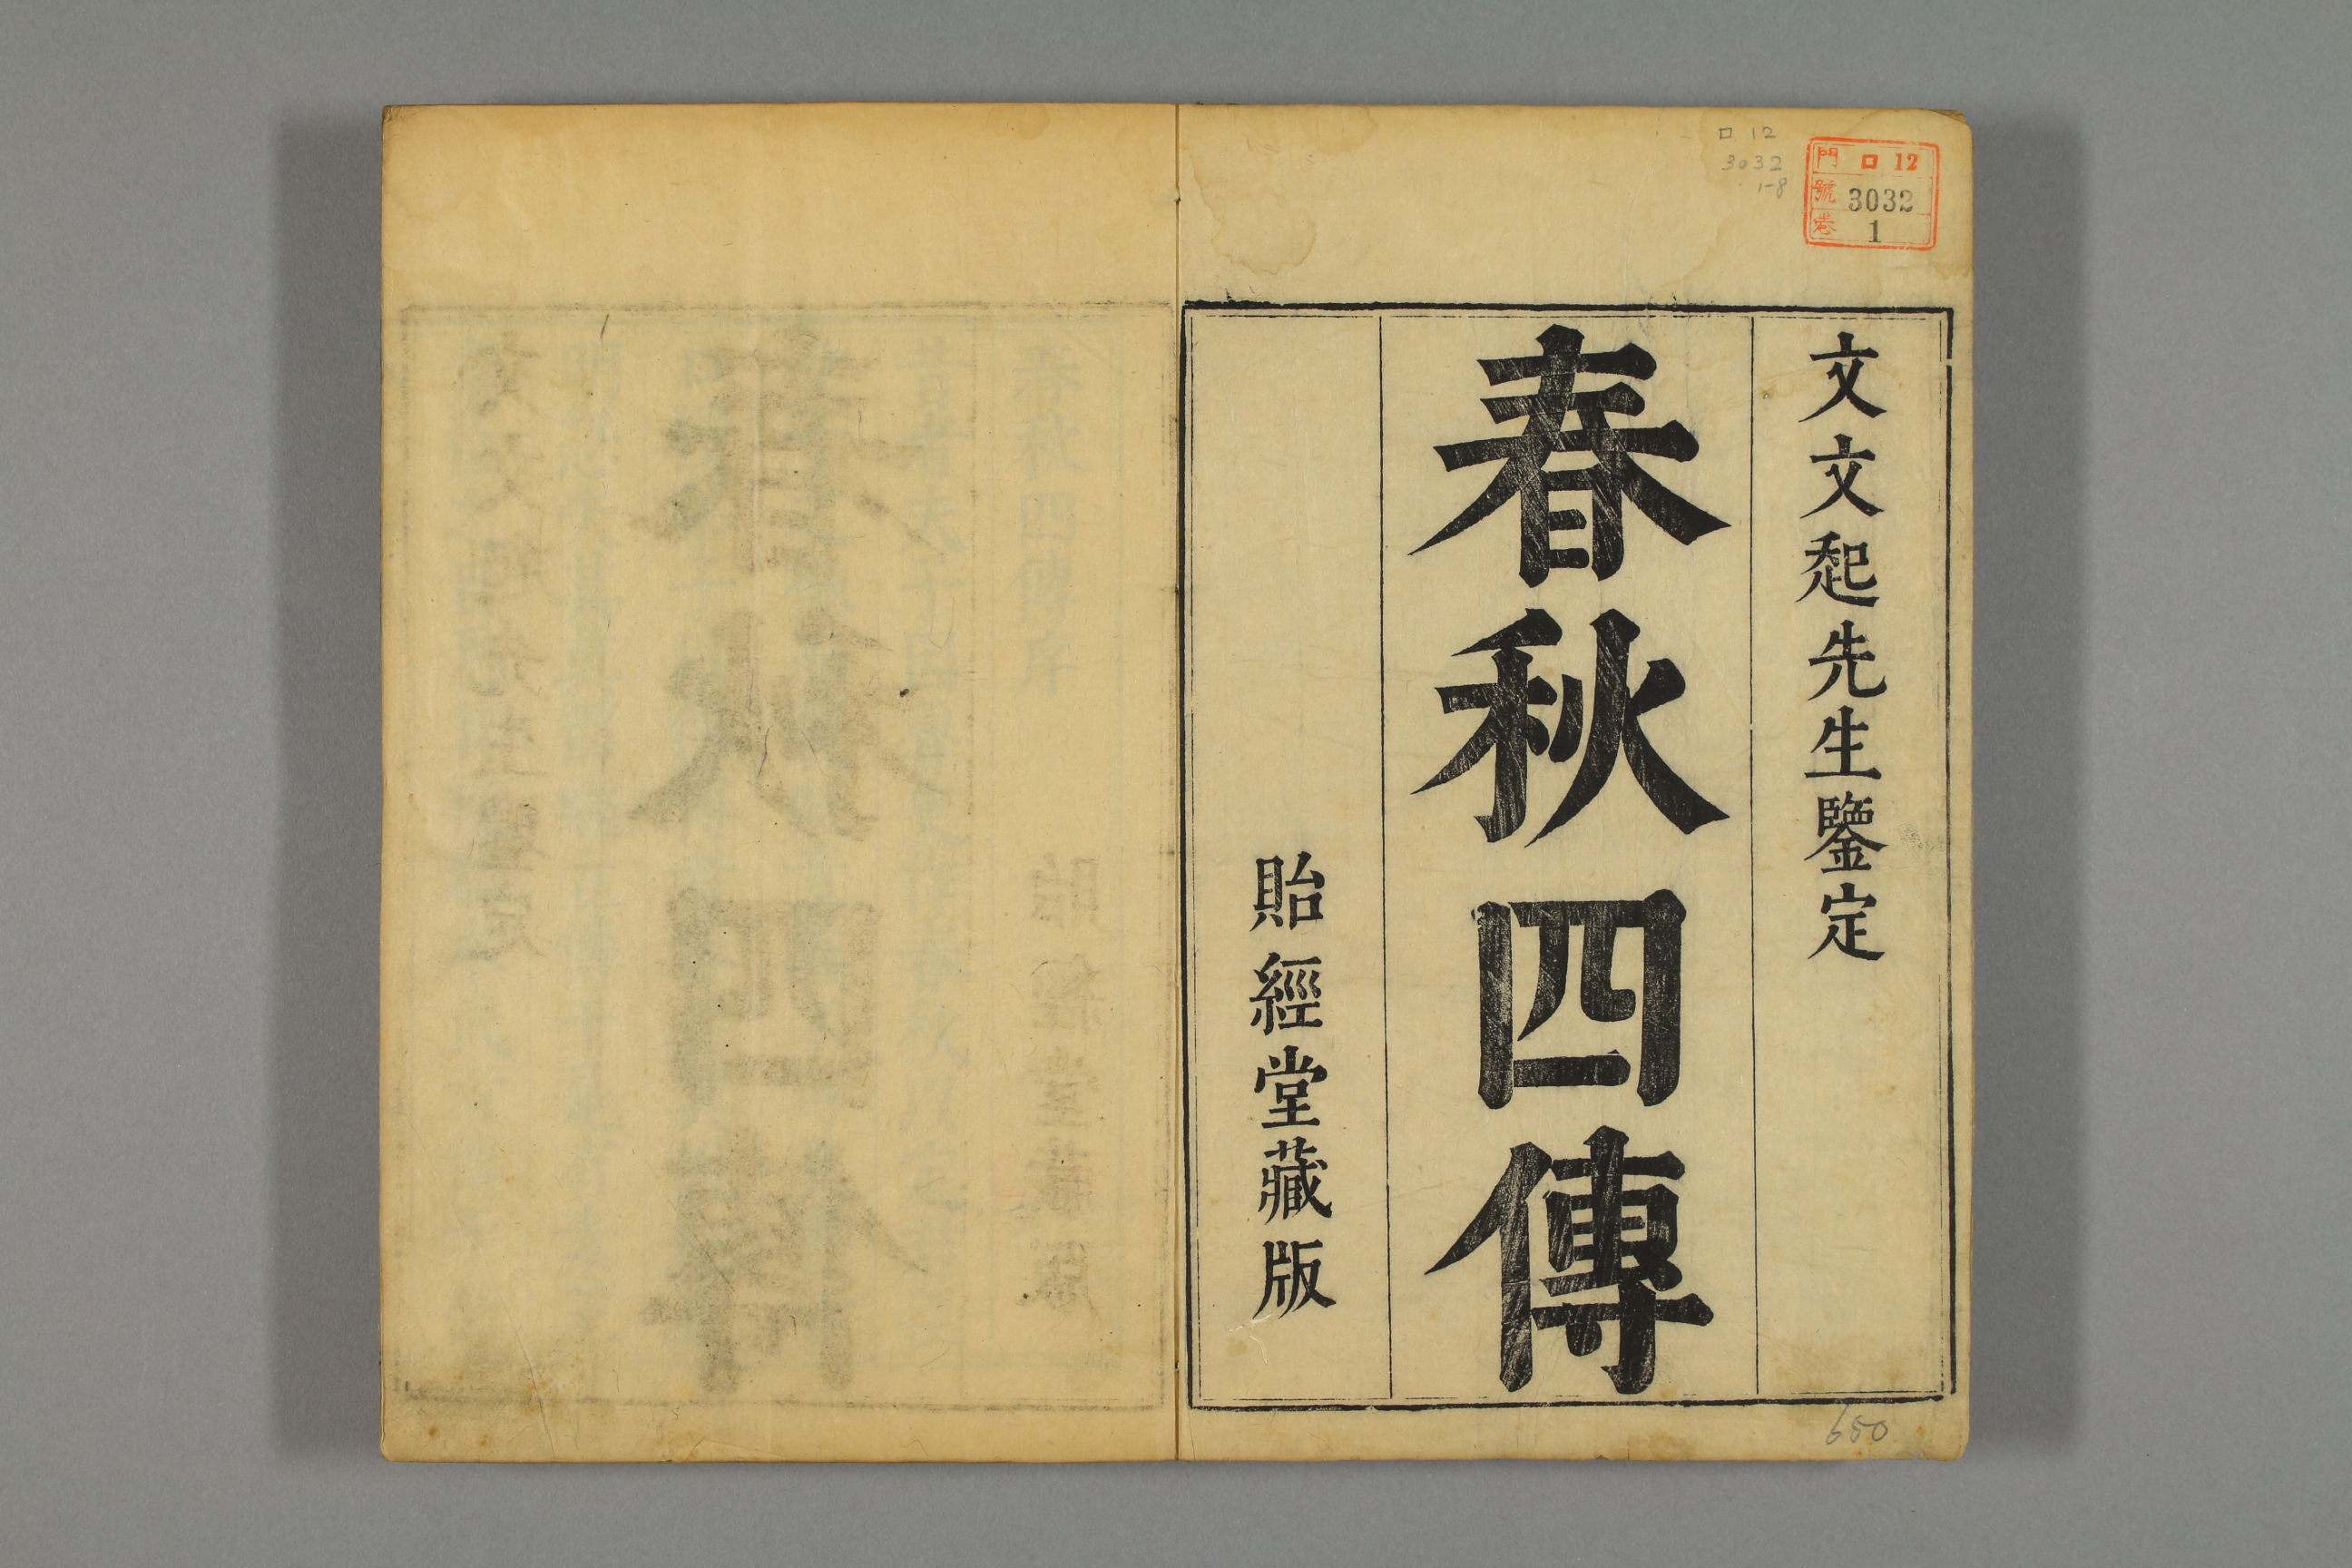 ロ 12
3032
1-8
門 ロ 12
號 3032
巻 1
文文起先生鑒定
春秋四傳
貽經堂藏版
650